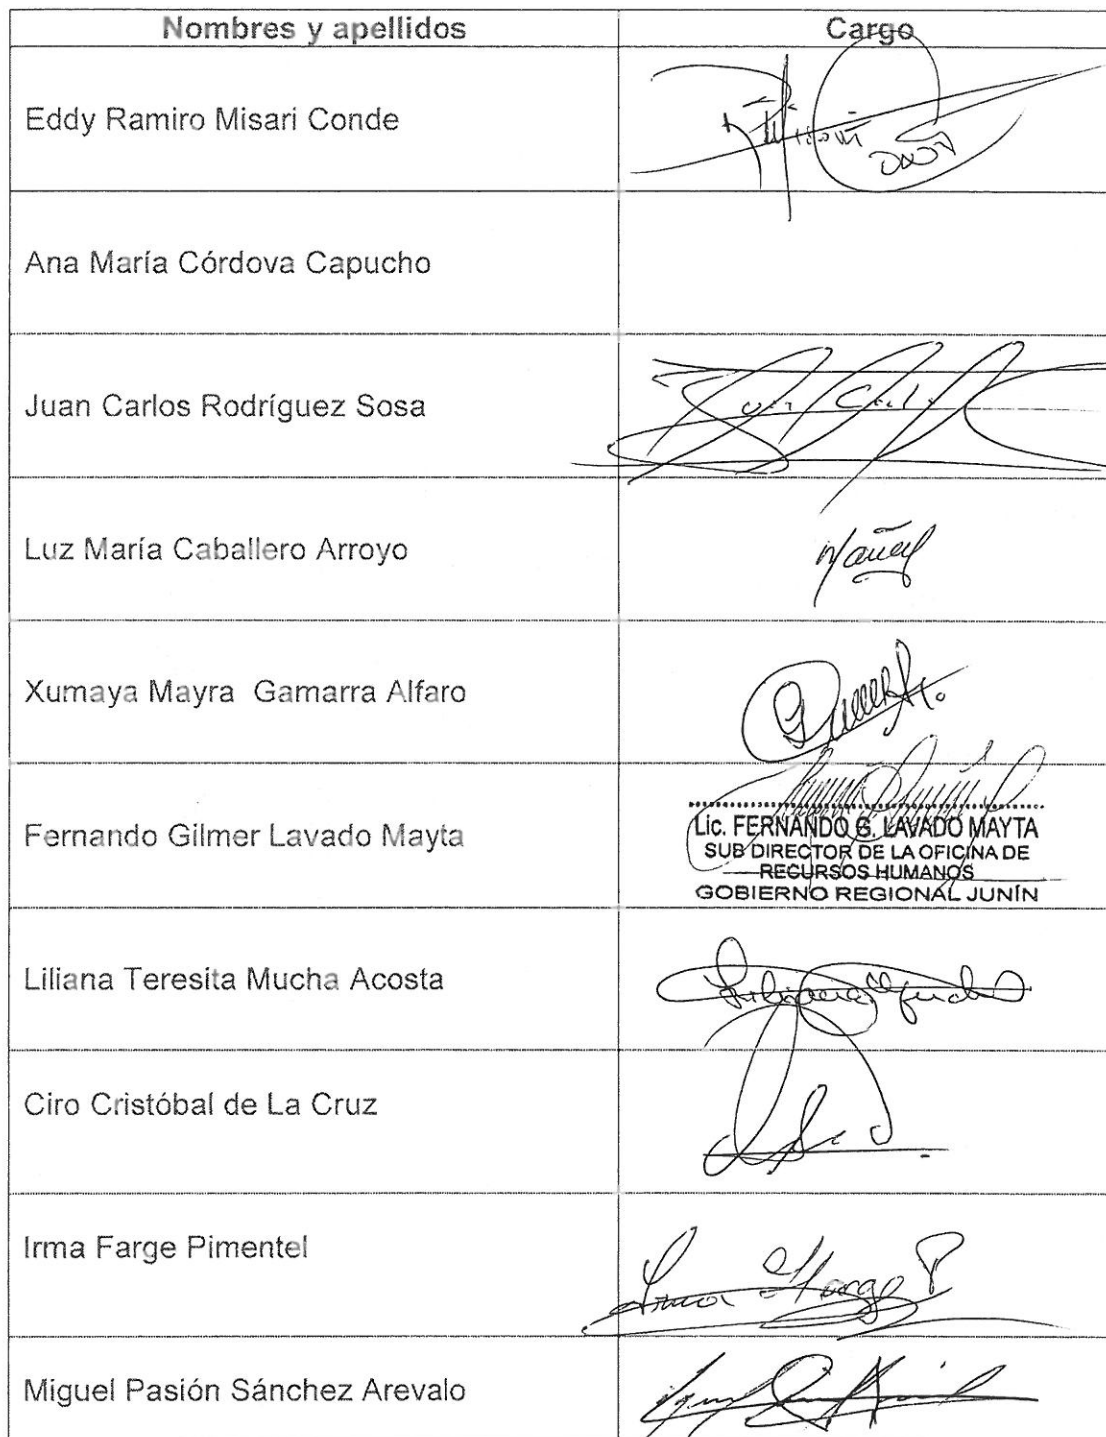 Nombres y apellidos Cargo
Eddy Ramiro Misari Conde
Ana María Córdova Capucho
Juan Carlos Rodríguez Sosa
Luz María Caballero Arroyo
Xumaya Mayra Gamarra Alfaro
Fernando Gilmer Lavado Mayta
Lic. FERNANDO G. LAVADO MAYTA
SUB DIRECTOR DE LA OFICINA DE
RECURSOS HUMANOS
GOBIERNO REGIONAL JUNÍN
Liliana Teresita Mucha Acosta
Ciro Cristóbal de La Cruz
Irma Farge Pimentel
Miguel Pasión Sánchez Arevalo